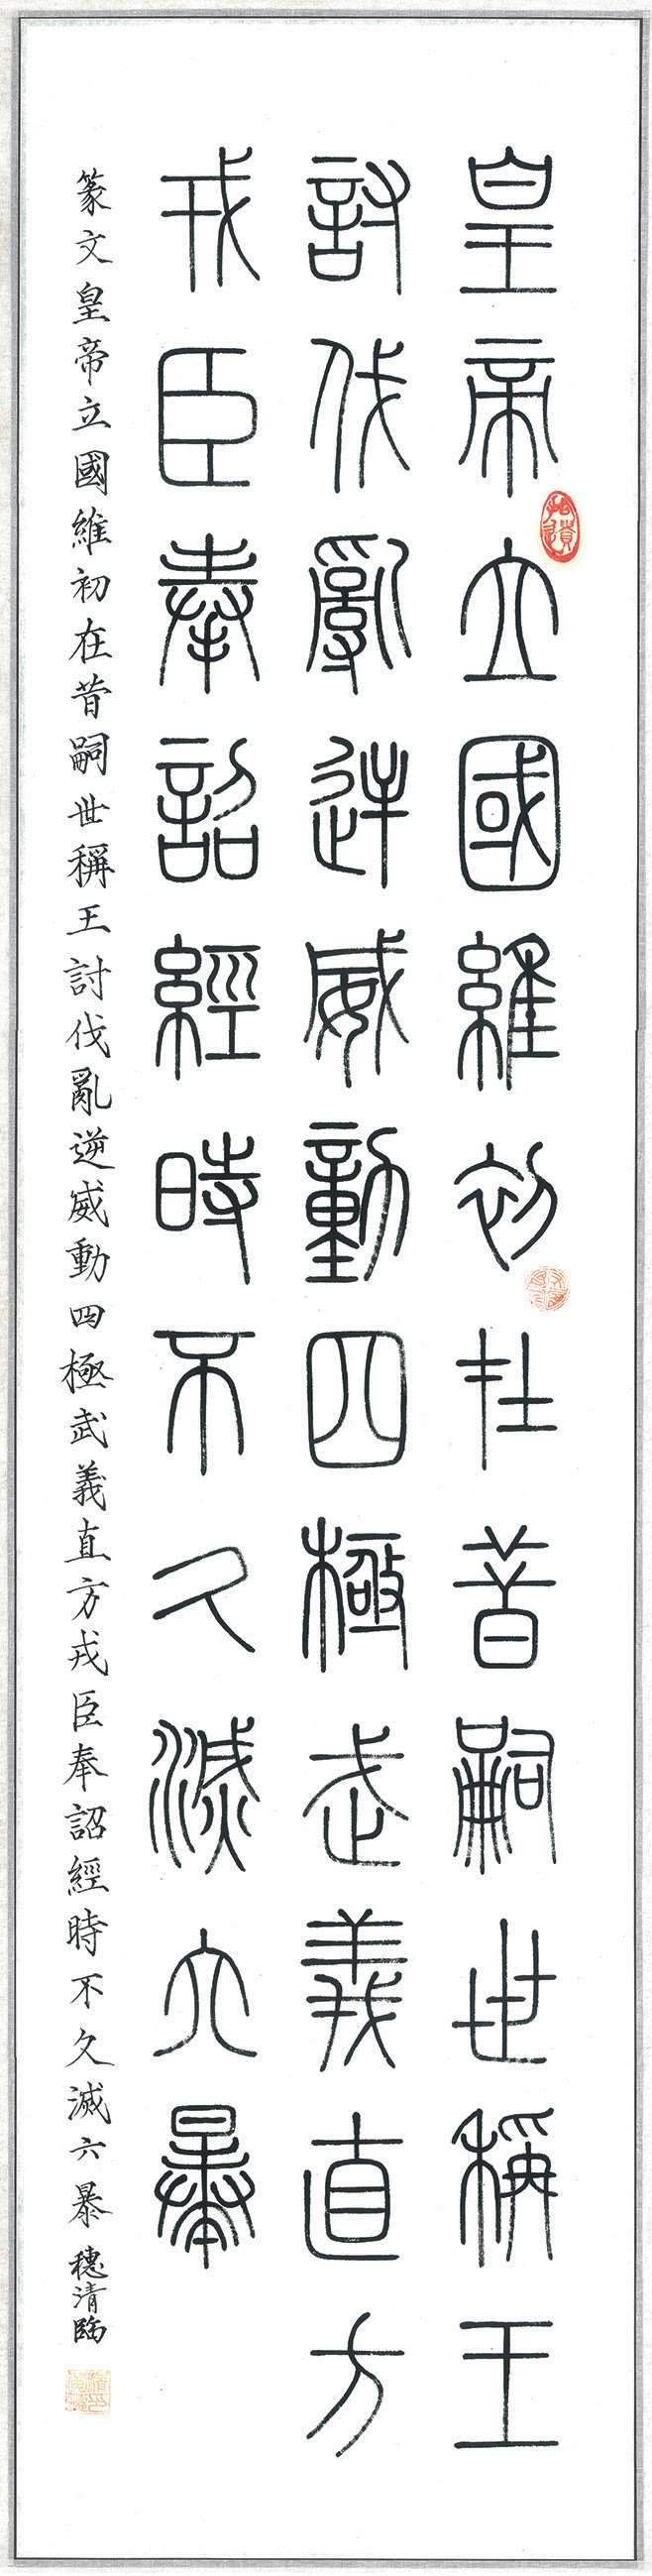 皇帝立國維初在昔嗣世稱王
討伐亂逆威動四極武義直方
戎臣奉詔經時不久滅六暴
篆文皇帝立國維初在昔嗣世稱王討伐亂逆威動四極武義直方戎臣奉詔經時不久滅六暴穗清臨